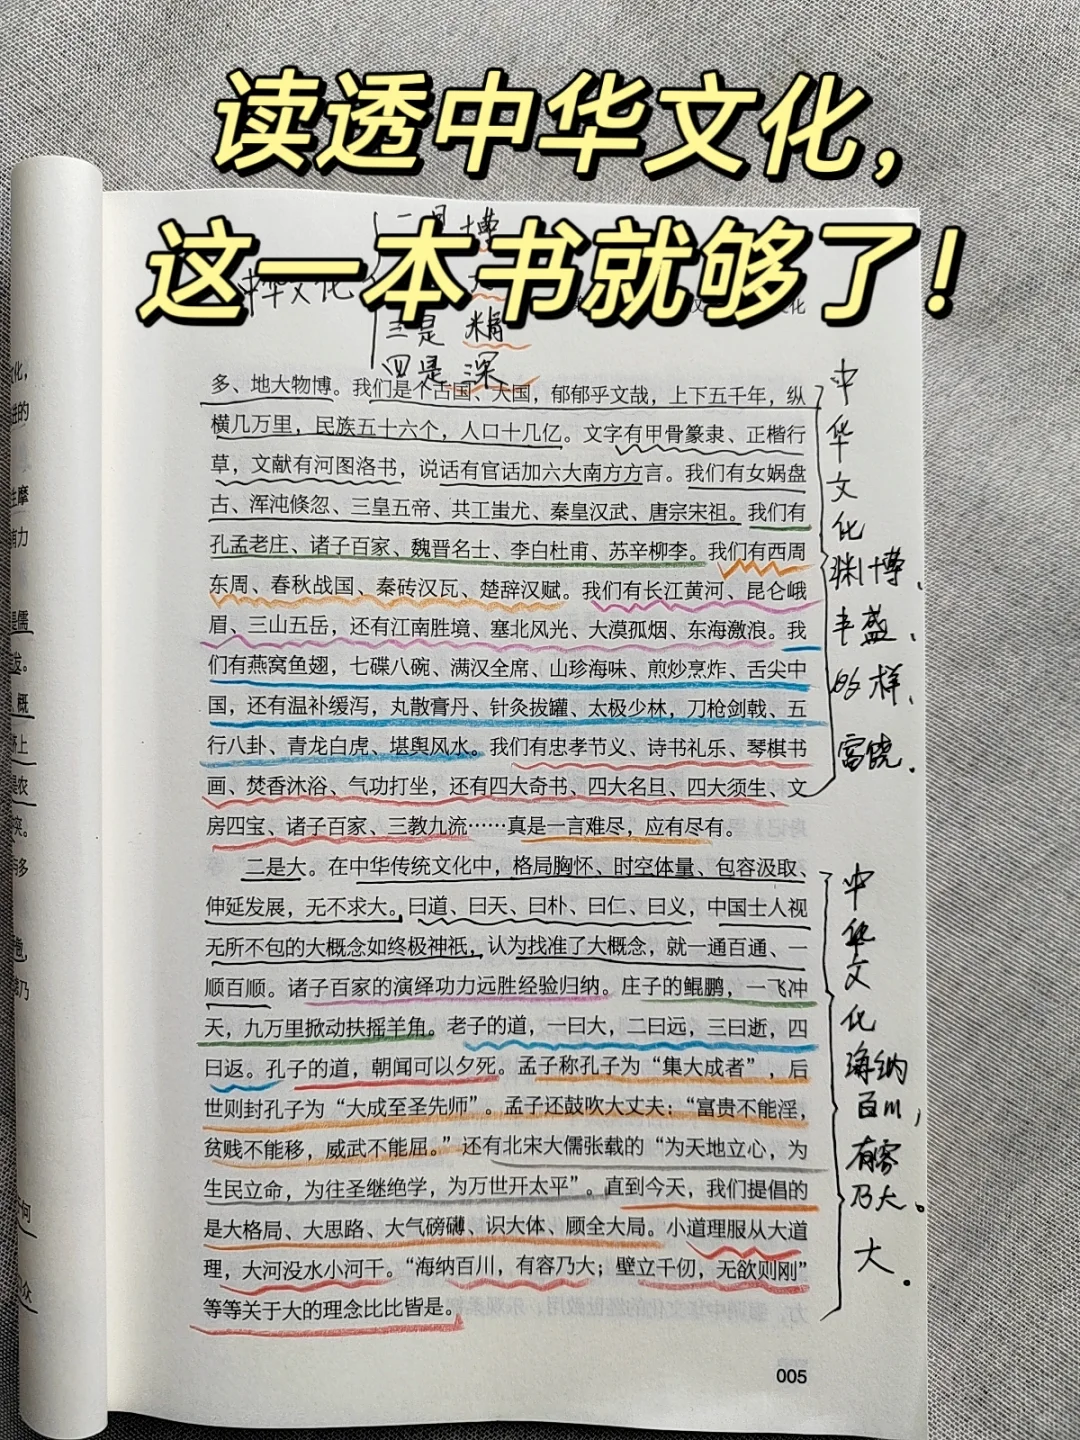 读透中华文化，
这一本书就够了！
一是 博
中华文化
三是 精
四是 深
多、地大物博。我们是个古国、大国，郁郁乎文哉，上下五千年，纵
横几万里，民族五十六个，人口十几亿。文字有甲骨篆隶、正楷行
草，文献有河图洛书，说话有官话加六大南方方言。我们有女娲盘
古、浑沌倏忽、三皇五帝、共工蚩尤、秦皇汉武、唐宗宋祖。我们有
孔孟老庄、诸子百家、魏晋名士、李白杜甫、苏辛柳李。我们有西周
东周、春秋战国、秦砖汉瓦、楚辞汉赋。我们有长江黄河、昆仑峨
眉、三山五岳，还有江南胜境、塞北风光、大漠孤烟、东海激浪。我
们有燕窝鱼翅，七碟八碗、满汉全席、山珍海味、煎炒烹炸、舌尖中
国，还有温补缓泻，丸散膏丹、针灸拔罐、太极少林，刀枪剑戟、五
行八卦、青龙白虎、堪舆风水。我们有忠孝节义、诗书礼乐、琴棋书
画、焚香沐浴、气功打坐，还有四大奇书、四大名旦、四大须生、文
房四宝、诸子百家、三教九流……真是一言难尽，应有尽有。
二是大。在中华传统文化中，格局胸怀、时空体量、包容汲取、
伸延发展，无不求大。曰道、曰天、曰朴、曰仁、曰义，中国士人视
无所不包的大概念如终极神祇，认为找准了大概念，就一通百通、一
顺百顺。诸子百家的演绎功力远胜经验归纳。庄子的鲲鹏，一飞冲
天，九万里掀动扶摇羊角。老子的道，一曰大，二曰远，三曰逝，四
曰返。孔子的道，朝闻可以夕死。孟子称孔子为“集大成者”，后
世则封孔子为“大成至圣先师”。孟子还鼓吹大丈夫：“富贵不能淫，
贫贱不能移，威武不能屈。”还有北宋大儒张载的“为天地立心，为
生民立命，为往圣继绝学，为万世开太平”。直到今天，我们提倡的
是大格局、大思路、大气磅礴、识大体、顾全大局。小道理服从大道
理，大河没水小河干。“海纳百川，有容乃大；壁立千仞，无欲则刚”
等等关于大的理念比比皆是。
中
华
文
化
渊博、
丰盛、
的样、
富饶.
中
华
文
化
海纳
百川，
有容
乃大。
大.
005